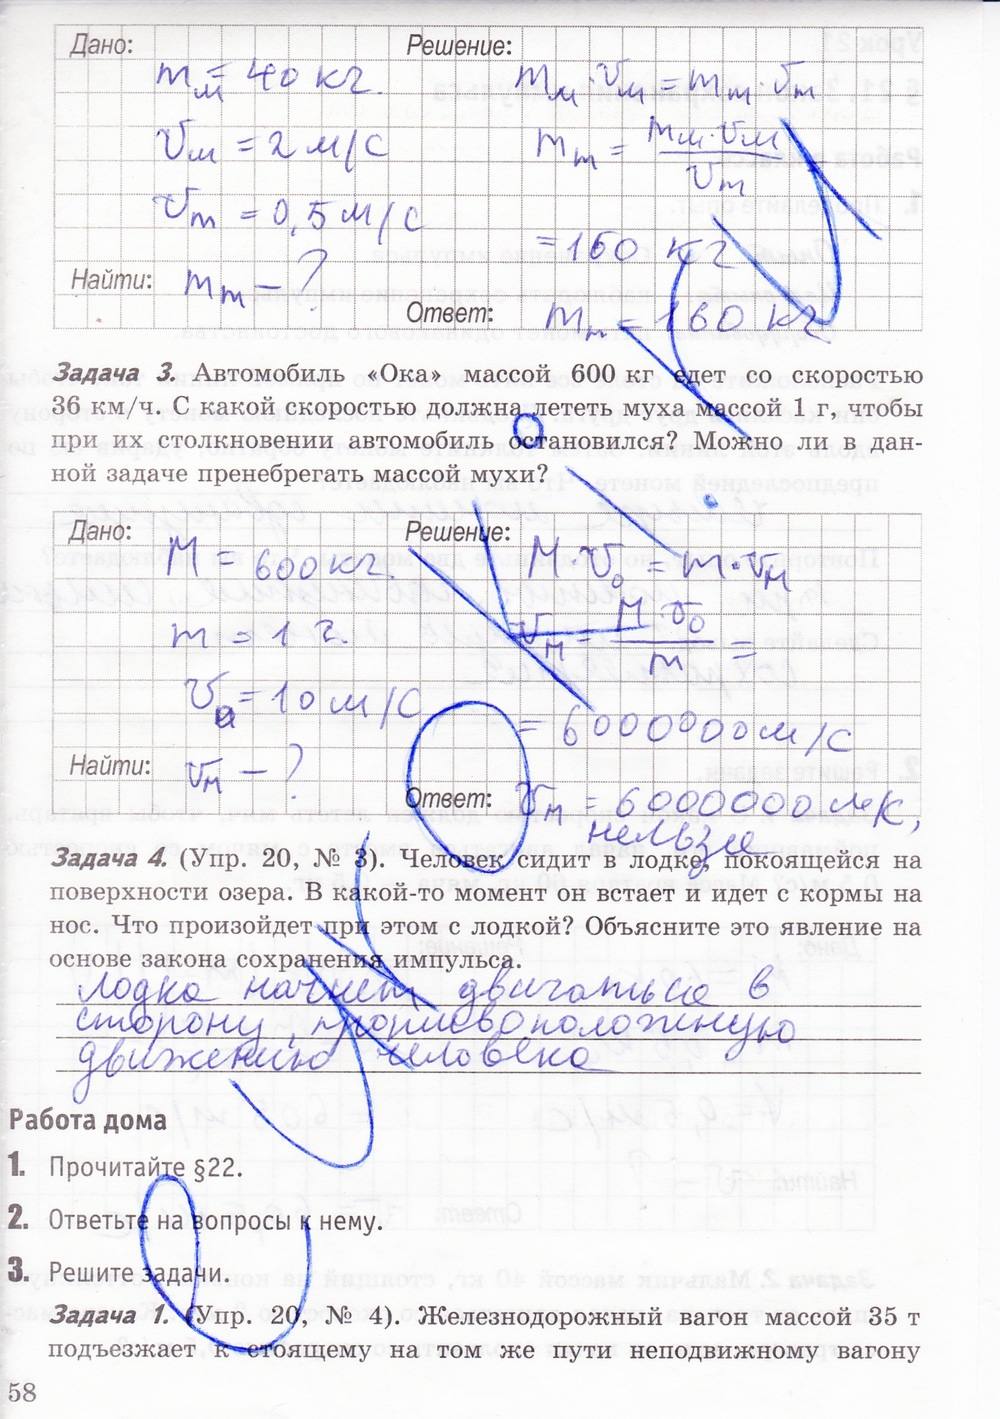 Дано:
Решение:
mм = 40 кг.
mм · vм = mт · vт
vм = 2 м/с
mт = mм · vм / vт
vт = 0,5 м/с
= 160 кг
Найти: mт – ?
Ответ: mт = 160 кг
Задача 3. Автомобиль «Ока» массой 600 кг едет со скоростью
36 км/ч. С какой скоростью должна лететь муха массой 1 г, чтобы
при их столкновении автомобиль остановился? Можно ли в дан-
ной задаче пренебрегать массой мухи?
Дано:
Решение:
M = 600 кг.
M v₀ = m · vм
m = 1 г.
vм = M · v₀ / m =
v₀ = 10 м/с
= 6000000 м/с
Найти: vм – ?
Ответ: vм = 6000000 м/с,
нельзя
Задача 4. (Упр. 20, № 3). Человек сидит в лодке, покоящейся на
поверхности озера. В какой-то момент он встает и идет с кормы на
нос. Что произойдет при этом с лодкой? Объясните это явление на
основе закона сохранения импульса.
лодка начнет двигаться в
сторону, противоположную
движению человека
Работа дома
1. Прочитайте §22.
2. Ответьте на вопросы к нему.
3. Решите задачи.
Задача 1. (Упр. 20, № 4). Железнодорожный вагон массой 35 т
подъезжает к стоящему на том же пути неподвижному вагону
58